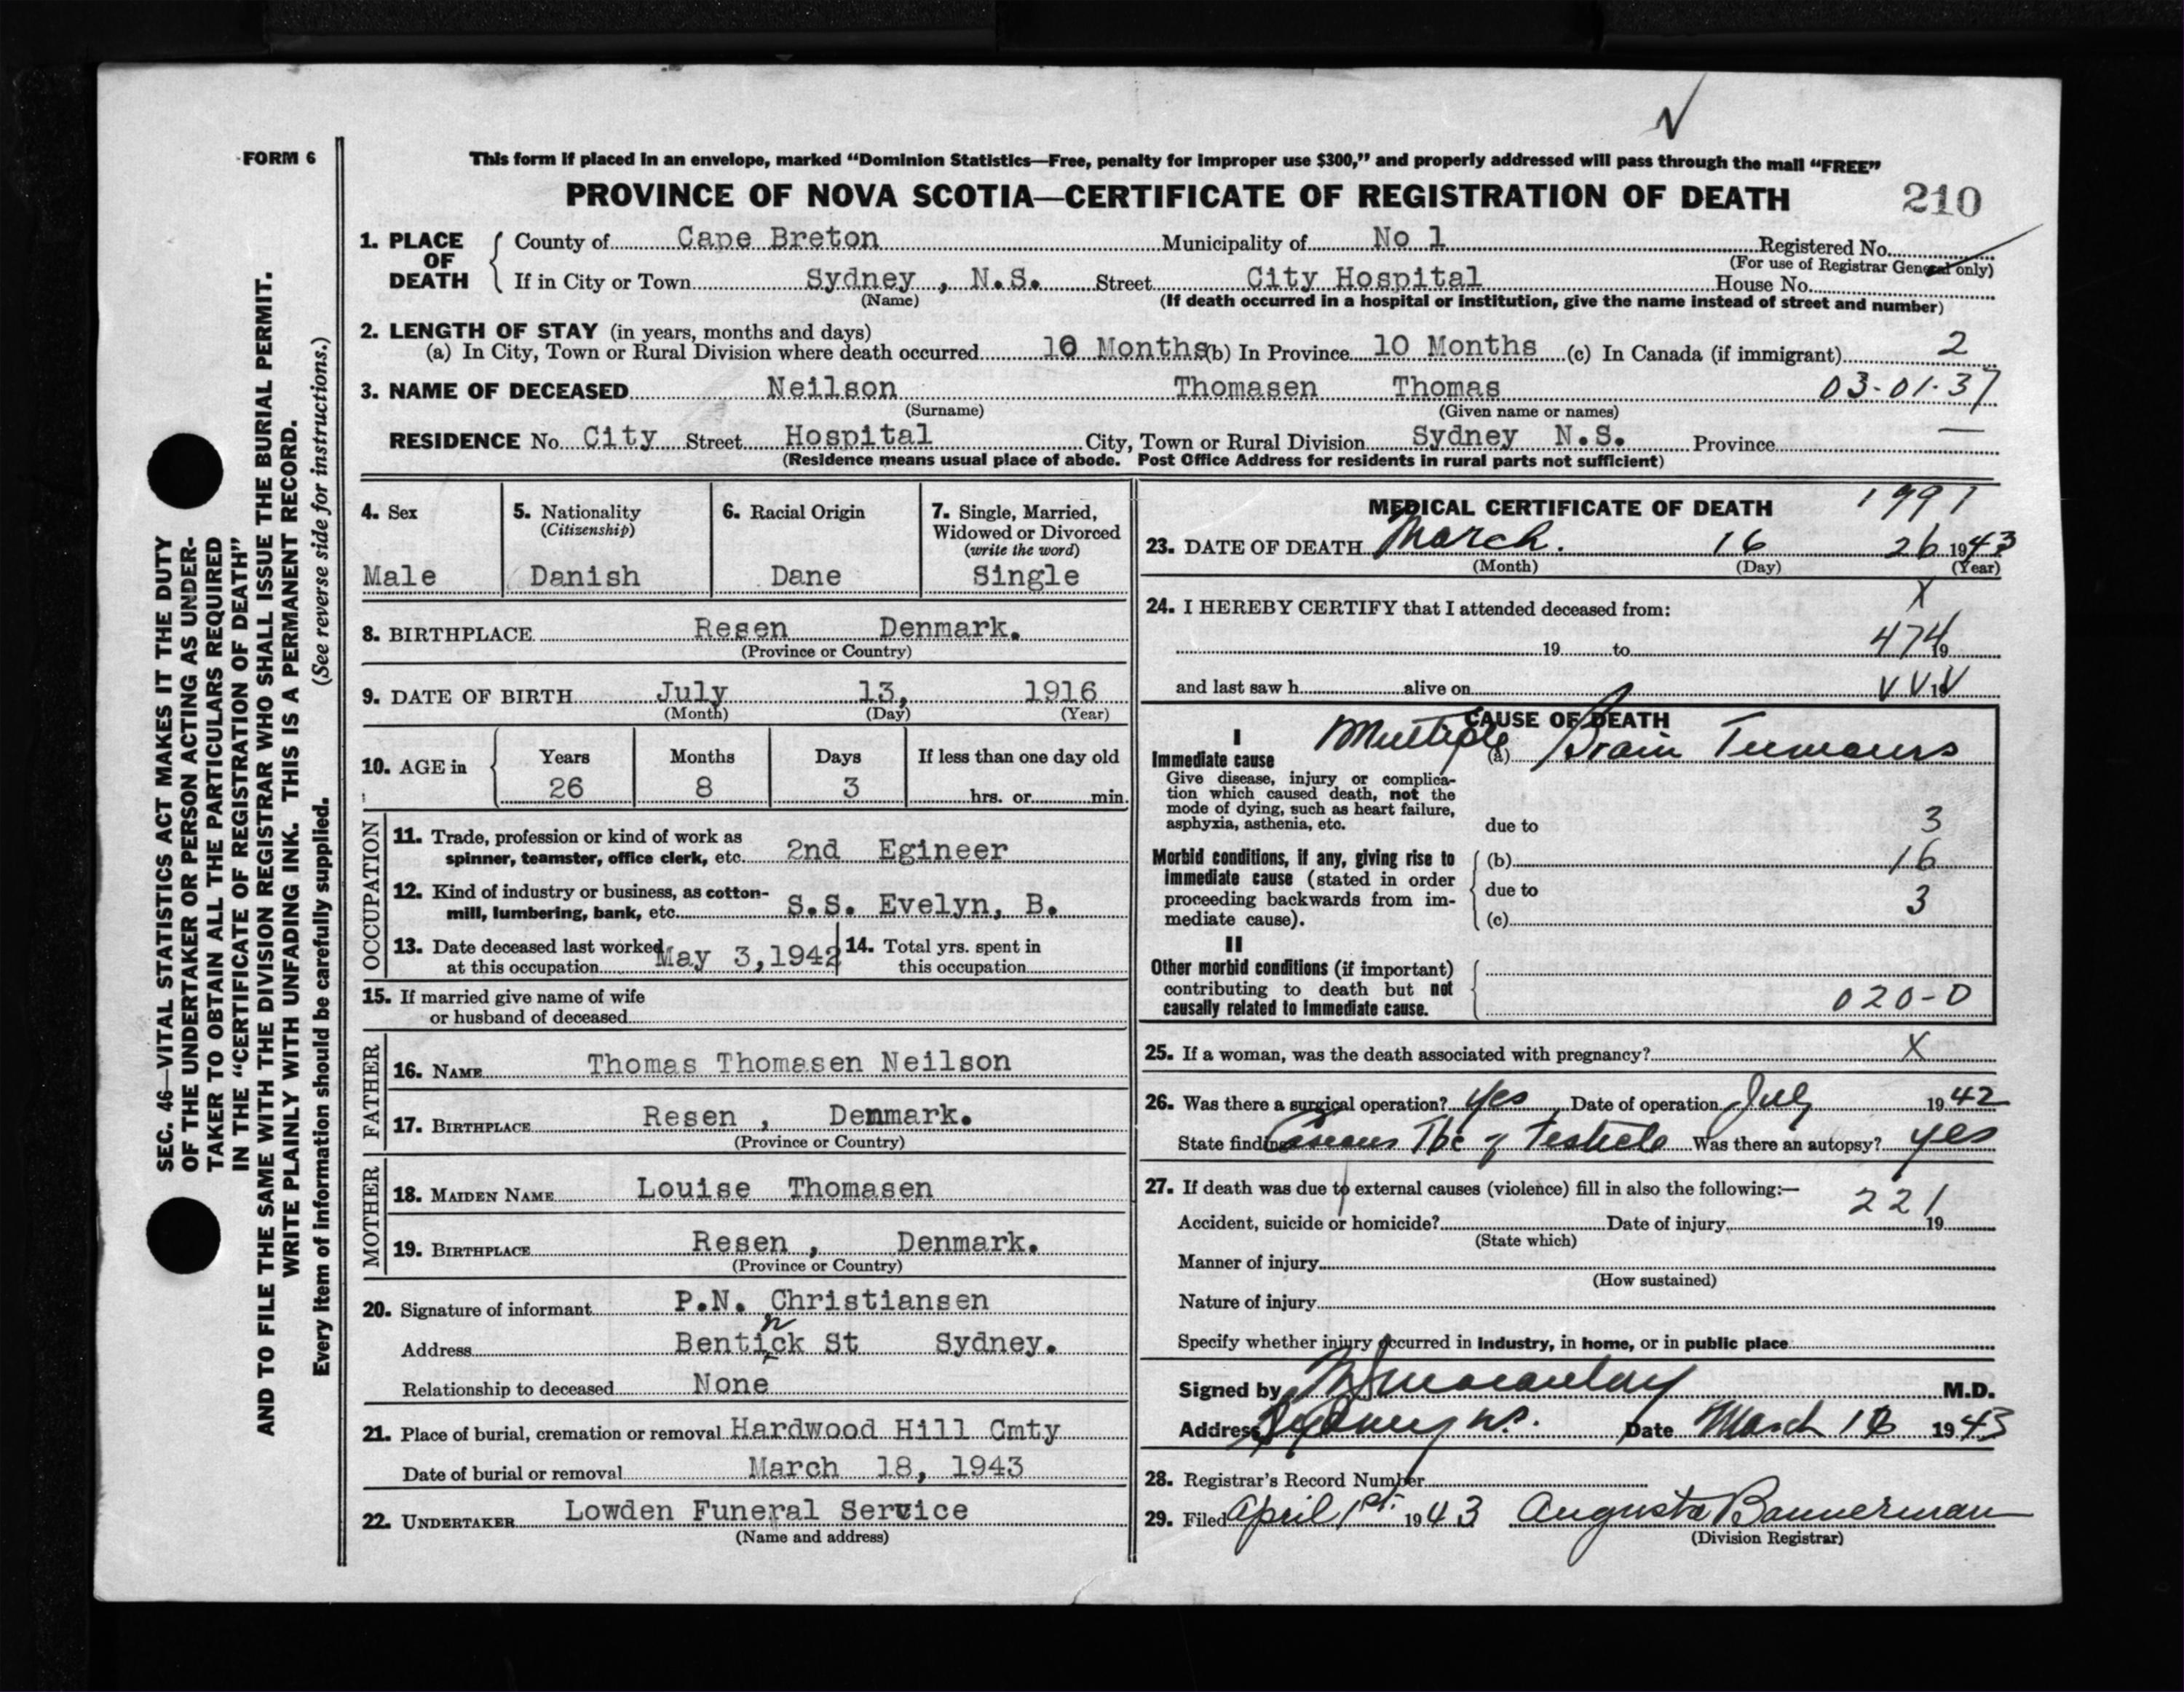 FORM 6
This form if placed in an envelope, marked “Dominion Statistics—Free, penalty for improper use $300,” and properly addressed will pass through the mail “FREE”
PROVINCE OF NOVA SCOTIA—CERTIFICATE OF REGISTRATION OF DEATH 210
1. PLACE OF DEATH County of Cape Breton Municipality of No 1 Registered No.
(For use of Registrar General only)
If in City or Town Sydney , N.S. Street City Hospital House No.
(Name) (If death occurred in a hospital or institution, give the name instead of street and number)
2. LENGTH OF STAY (in years, months and days)
(a) In City, Town or Rural Division where death occurred 10 Months (b) In Province 10 Months (c) In Canada (if immigrant) 2
3. NAME OF DECEASED Neilson Thomasen Thomas 03-01-37
(Surname) (Given name or names)
RESIDENCE No. City Street Hospital City, Town or Rural Division Sydney N.S. Province —
(Residence means usual place of abode. Post Office Address for residents in rural parts not sufficient)
4. Sex
Male
5. Nationality
(Citizenship)
Danish
6. Racial Origin
Dane
7. Single, Married,
Widowed or Divorced
(write the word)
Single
8. BIRTHPLACE Resen Denmark.
(Province or Country)
9. DATE OF BIRTH July 13, 1916
(Month) (Day) (Year)
10. AGE in Years Months Days If less than one day old
26 8 3 hrs. or min.
OCCUPATION
11. Trade, profession or kind of work as
spinner, teamster, office clerk, etc. 2nd Egineer
12. Kind of industry or business, as cotton-
mill, lumbering, bank, etc. S.S. Evelyn, B.
13. Date deceased last worked
at this occupation May 3,1942
14. Total yrs. spent in
this occupation
15. If married give name of wife
or husband of deceased
FATHER
16. NAME Thomas Thomasen Neilson
17. BIRTHPLACE Resen , Denmark.
(Province or Country)
MOTHER
18. MAIDEN NAME Louise Thomasen
19. BIRTHPLACE Resen , Denmark.
(Province or Country)
20. Signature of informant P.N. Christiansen
n
Address Bentick St Sydney.
Relationship to deceased None
21. Place of burial, cremation or removal Hardwood Hill Cmty
Date of burial or removal March 18, 1943
22. UNDERTAKER Lowden Funeral Service
(Name and address)
MEDICAL CERTIFICATE OF DEATH 1991
23. DATE OF DEATH March. 16 26 1943
(Month) (Day) (Year)
24. I HEREBY CERTIFY that I attended deceased from: X
19 to 474 19
and last saw h alive on V V 19 V
CAUSE OF DEATH
I
Immediate cause Multiple (a) Brain Tumours
Give disease, injury or complica-
tion which caused death, not the
mode of dying, such as heart failure,
asphyxia, asthenia, etc. due to 3
Morbid conditions, if any, giving rise to (b) 16
immediate cause (stated in order
proceeding backwards from im- due to 3
mediate cause). (c)
II
Other morbid conditions (if important)
contributing to death but not
causally related to immediate cause. 020-0
25. If a woman, was the death associated with pregnancy? X
26. Was there a surgical operation? Yes Date of operation July 1942
State findings Caseous Tbc of Testicle Was there an autopsy? yes
27. If death was due to external causes (violence) fill in also the following:— 221
Accident, suicide or homicide? Date of injury 19
(State which)
Manner of injury
(How sustained)
Nature of injury
Specify whether injury occurred in industry, in home, or in public place
Signed by Macaulay M.D.
Address Sydney N.S. Date March 18 1943
28. Registrar's Record Number
29. Filed April 1st. 1943 Augusta Bannerman
(Division Registrar)
SEC. 46—VITAL STATISTICS ACT MAKES IT THE DUTY
OF THE UNDERTAKER OR PERSON ACTING AS UNDER-
TAKER TO OBTAIN ALL THE PARTICULARS REQUIRED
IN THE “CERTIFICATE OF REGISTRATION OF DEATH”
AND TO FILE THE SAME WITH THE DIVISION REGISTRAR WHO SHALL ISSUE THE BURIAL PERMIT.
WRITE PLAINLY WITH UNFADING INK. THIS IS A PERMANENT RECORD.
Every item of information should be carefully supplied. (See reverse side for instructions.)